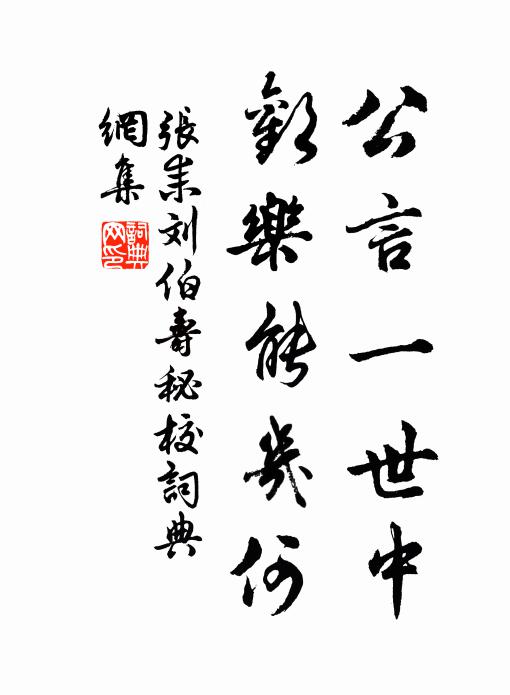 公言一世中
歡樂能幾何
張耒刘伯壽秘校詞典
網集
詞典
网印